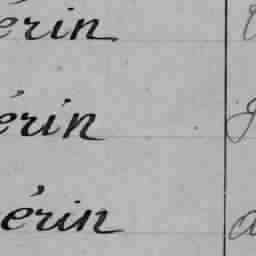 érin
érin
érin